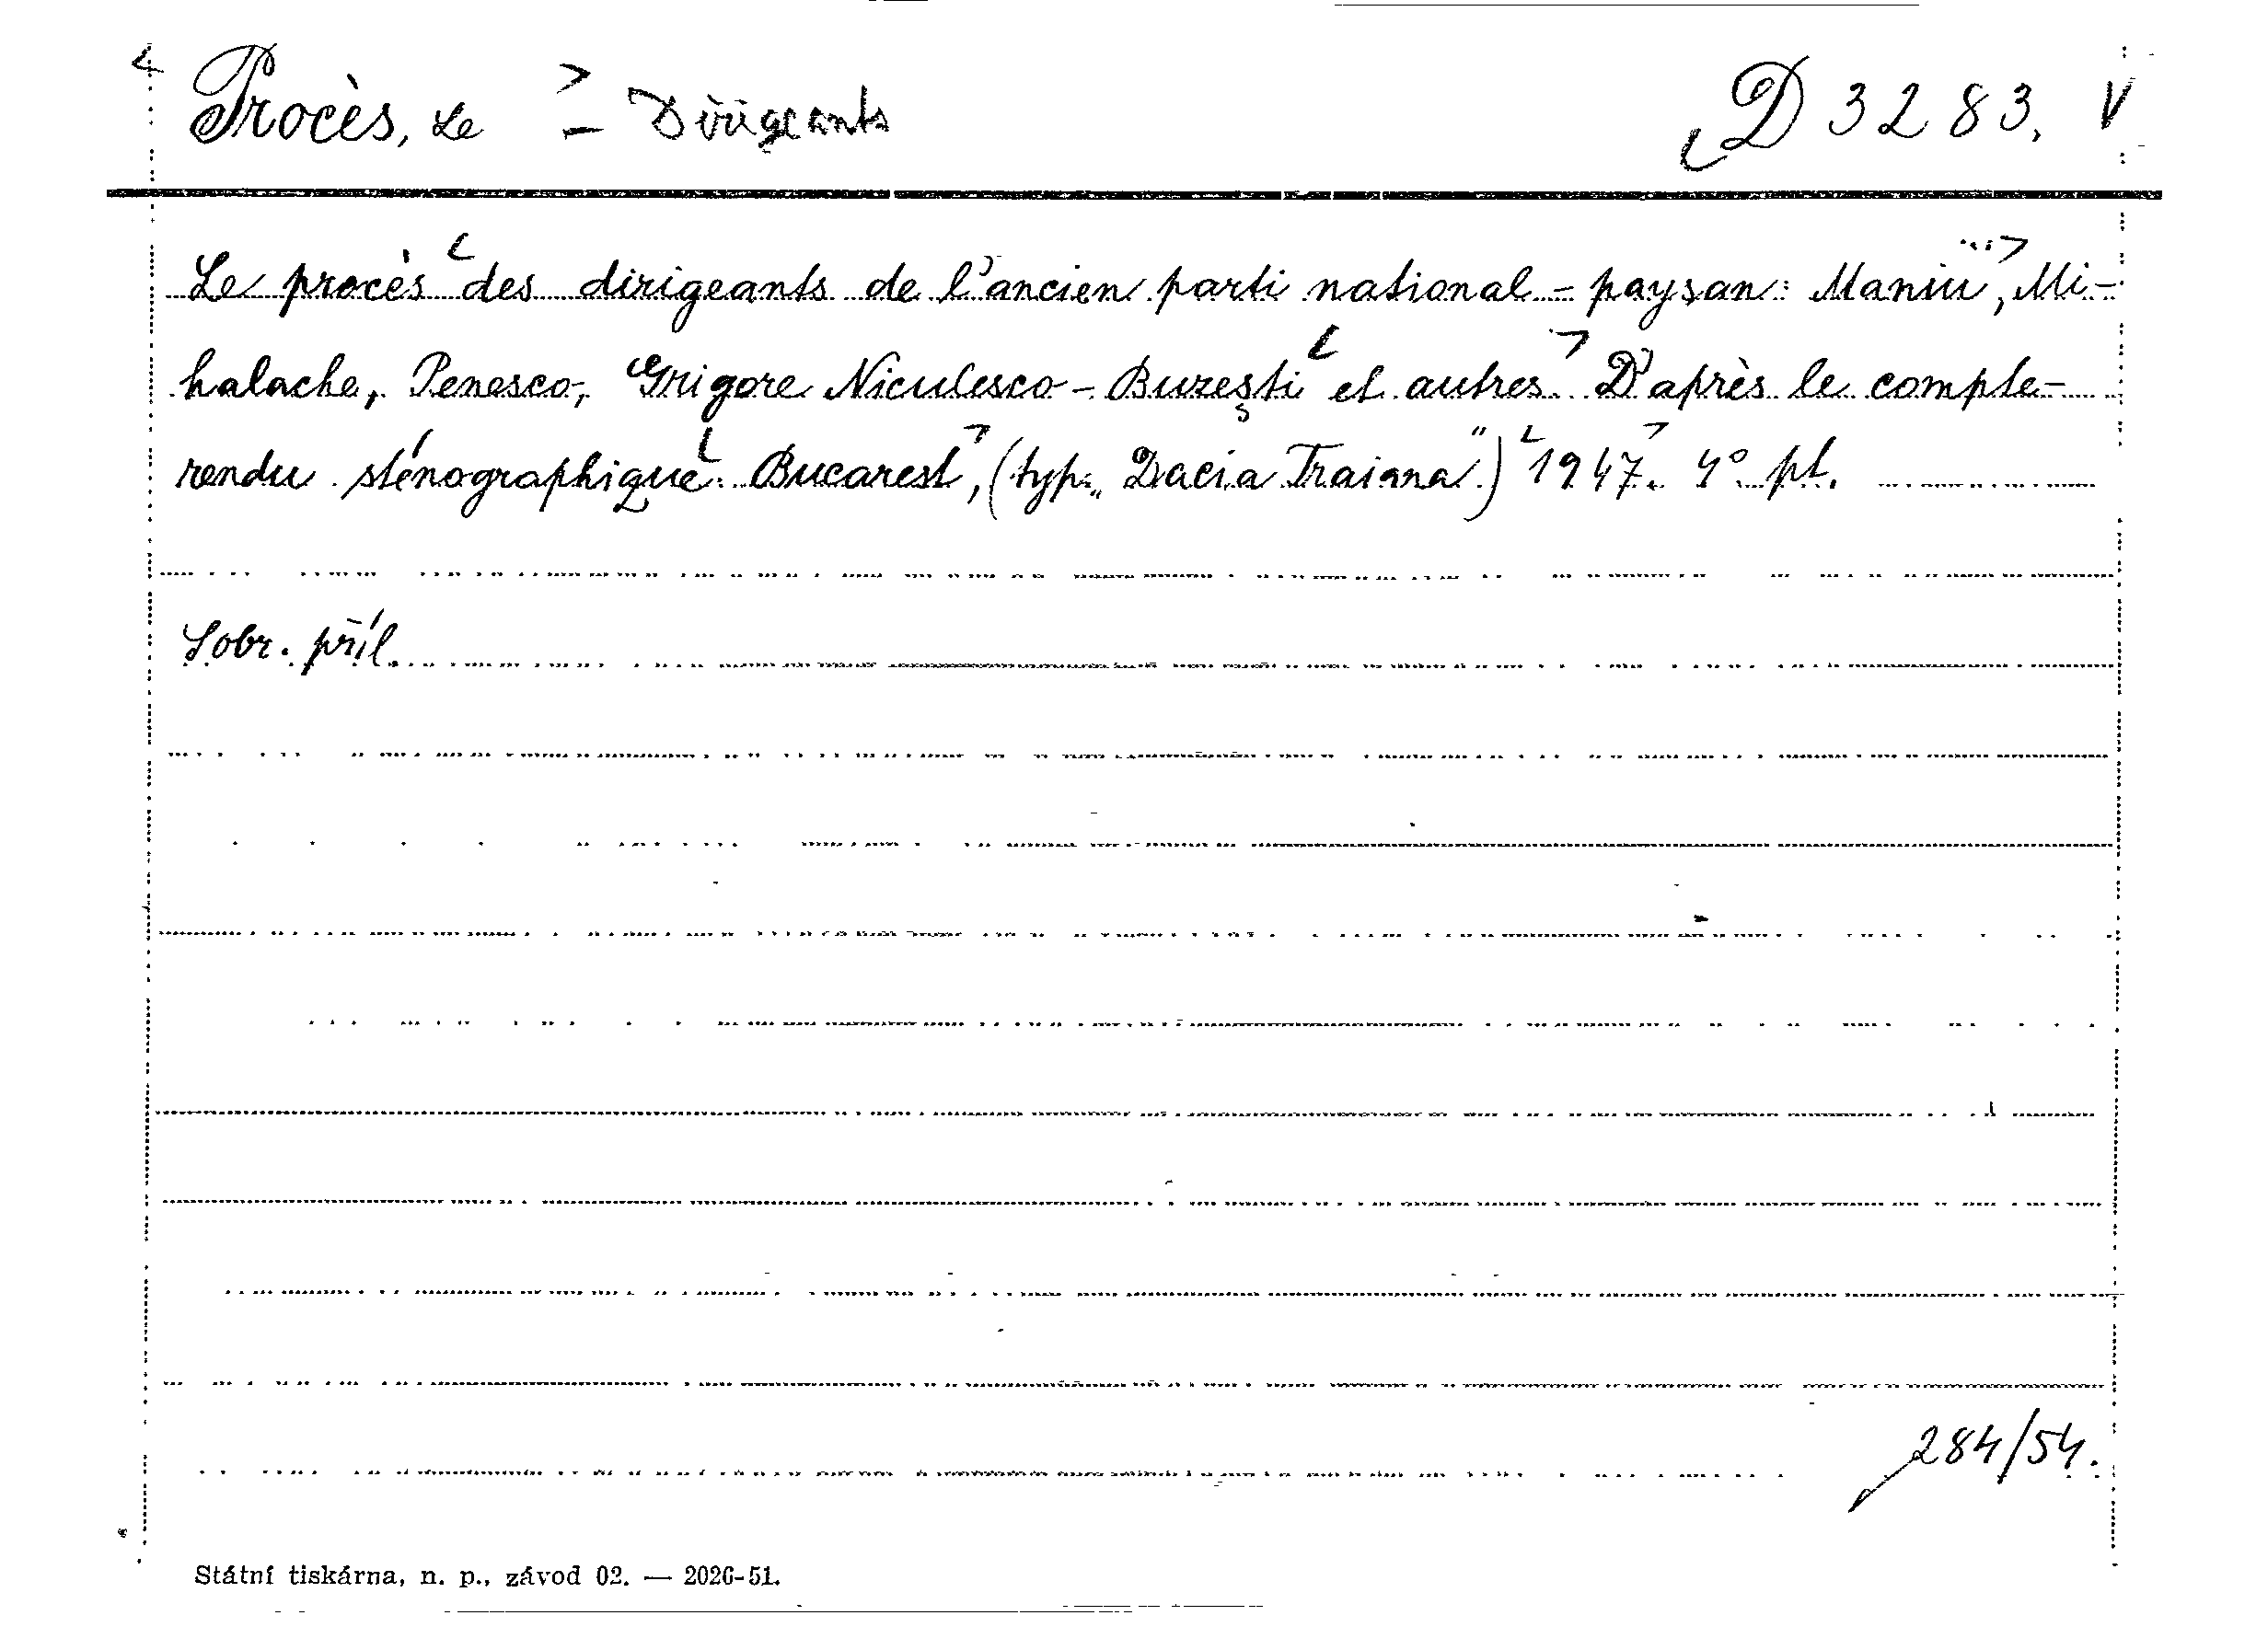 Procès, Le - Dirigeants D 3283. V
Le procès des dirigeants de l'ancien parti national-paysan: Maniu, Mi-
halache, Penesco, Grigore Niculesco-Buzeşti et autres. D'après le compte-
rendu sténographique. Bucarest, (typ. „Dacia Traiana") 1947. 4° pt.
Sobr. příl.
284/54.
Státní tiskárna, n. p., závod 02. — 2026-51.